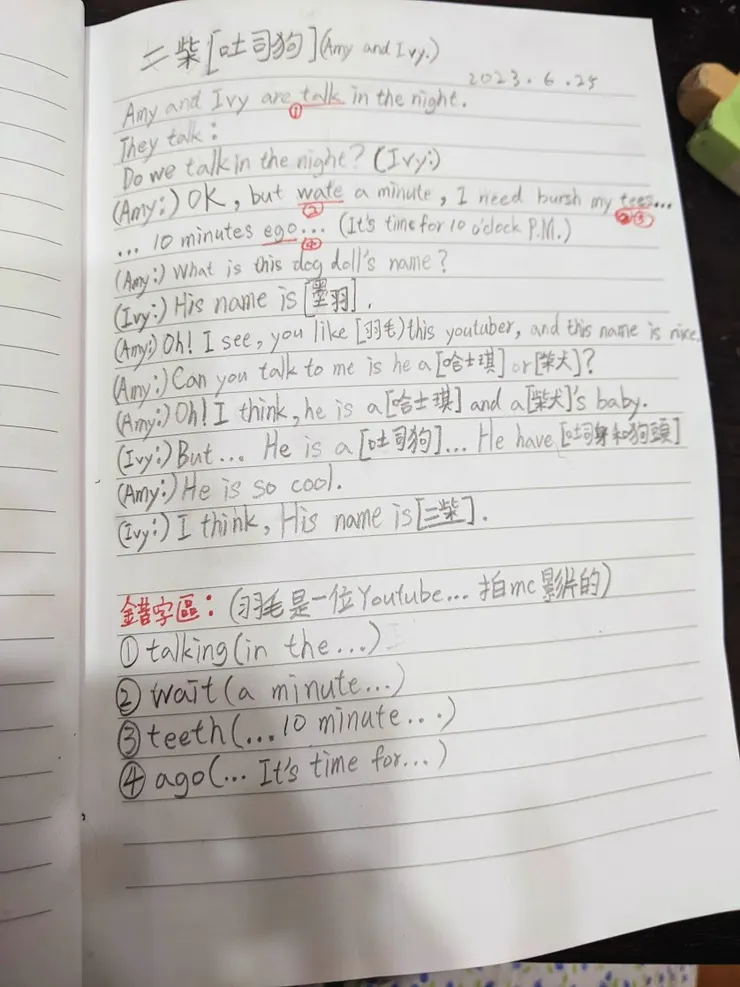 二柴[吐司狗](Amy and Ivy.)
2023.6.25
Amy and Ivy are talk in the night.
①
They talk:
Do we talk in the night? (Ivy:)
(Amy:) OK, but wate a minute, I need bursh my tees...
② ③
... 10 minutes ego... (It's time for 10 o'clock P.M.)
④
(Amy:) What is this dog doll's name?
(Ivy:) His name is [墨羽].
(Amy:) Oh! I see, you like [羽毛] this youtuber, and this name is nice.
(Amy:) Can you talk to me is he a [哈士琪] or [柴犬]?
(Amy:) Oh! I think, he is a [哈士琪] and a [柴犬]'s baby.
(Ivy:) But... He is a [吐司狗]... He have [吐司身和狗頭]
(Amy:) He is so cool.
(Ivy:) I think, His name is [二柴].
錯字區: (羽毛是一位Youtube... 拍mc影片的)
① talking (in the...)
② wait (a minute...)
③ teeth (... 10 minute...)
④ ago (... It's time for...)